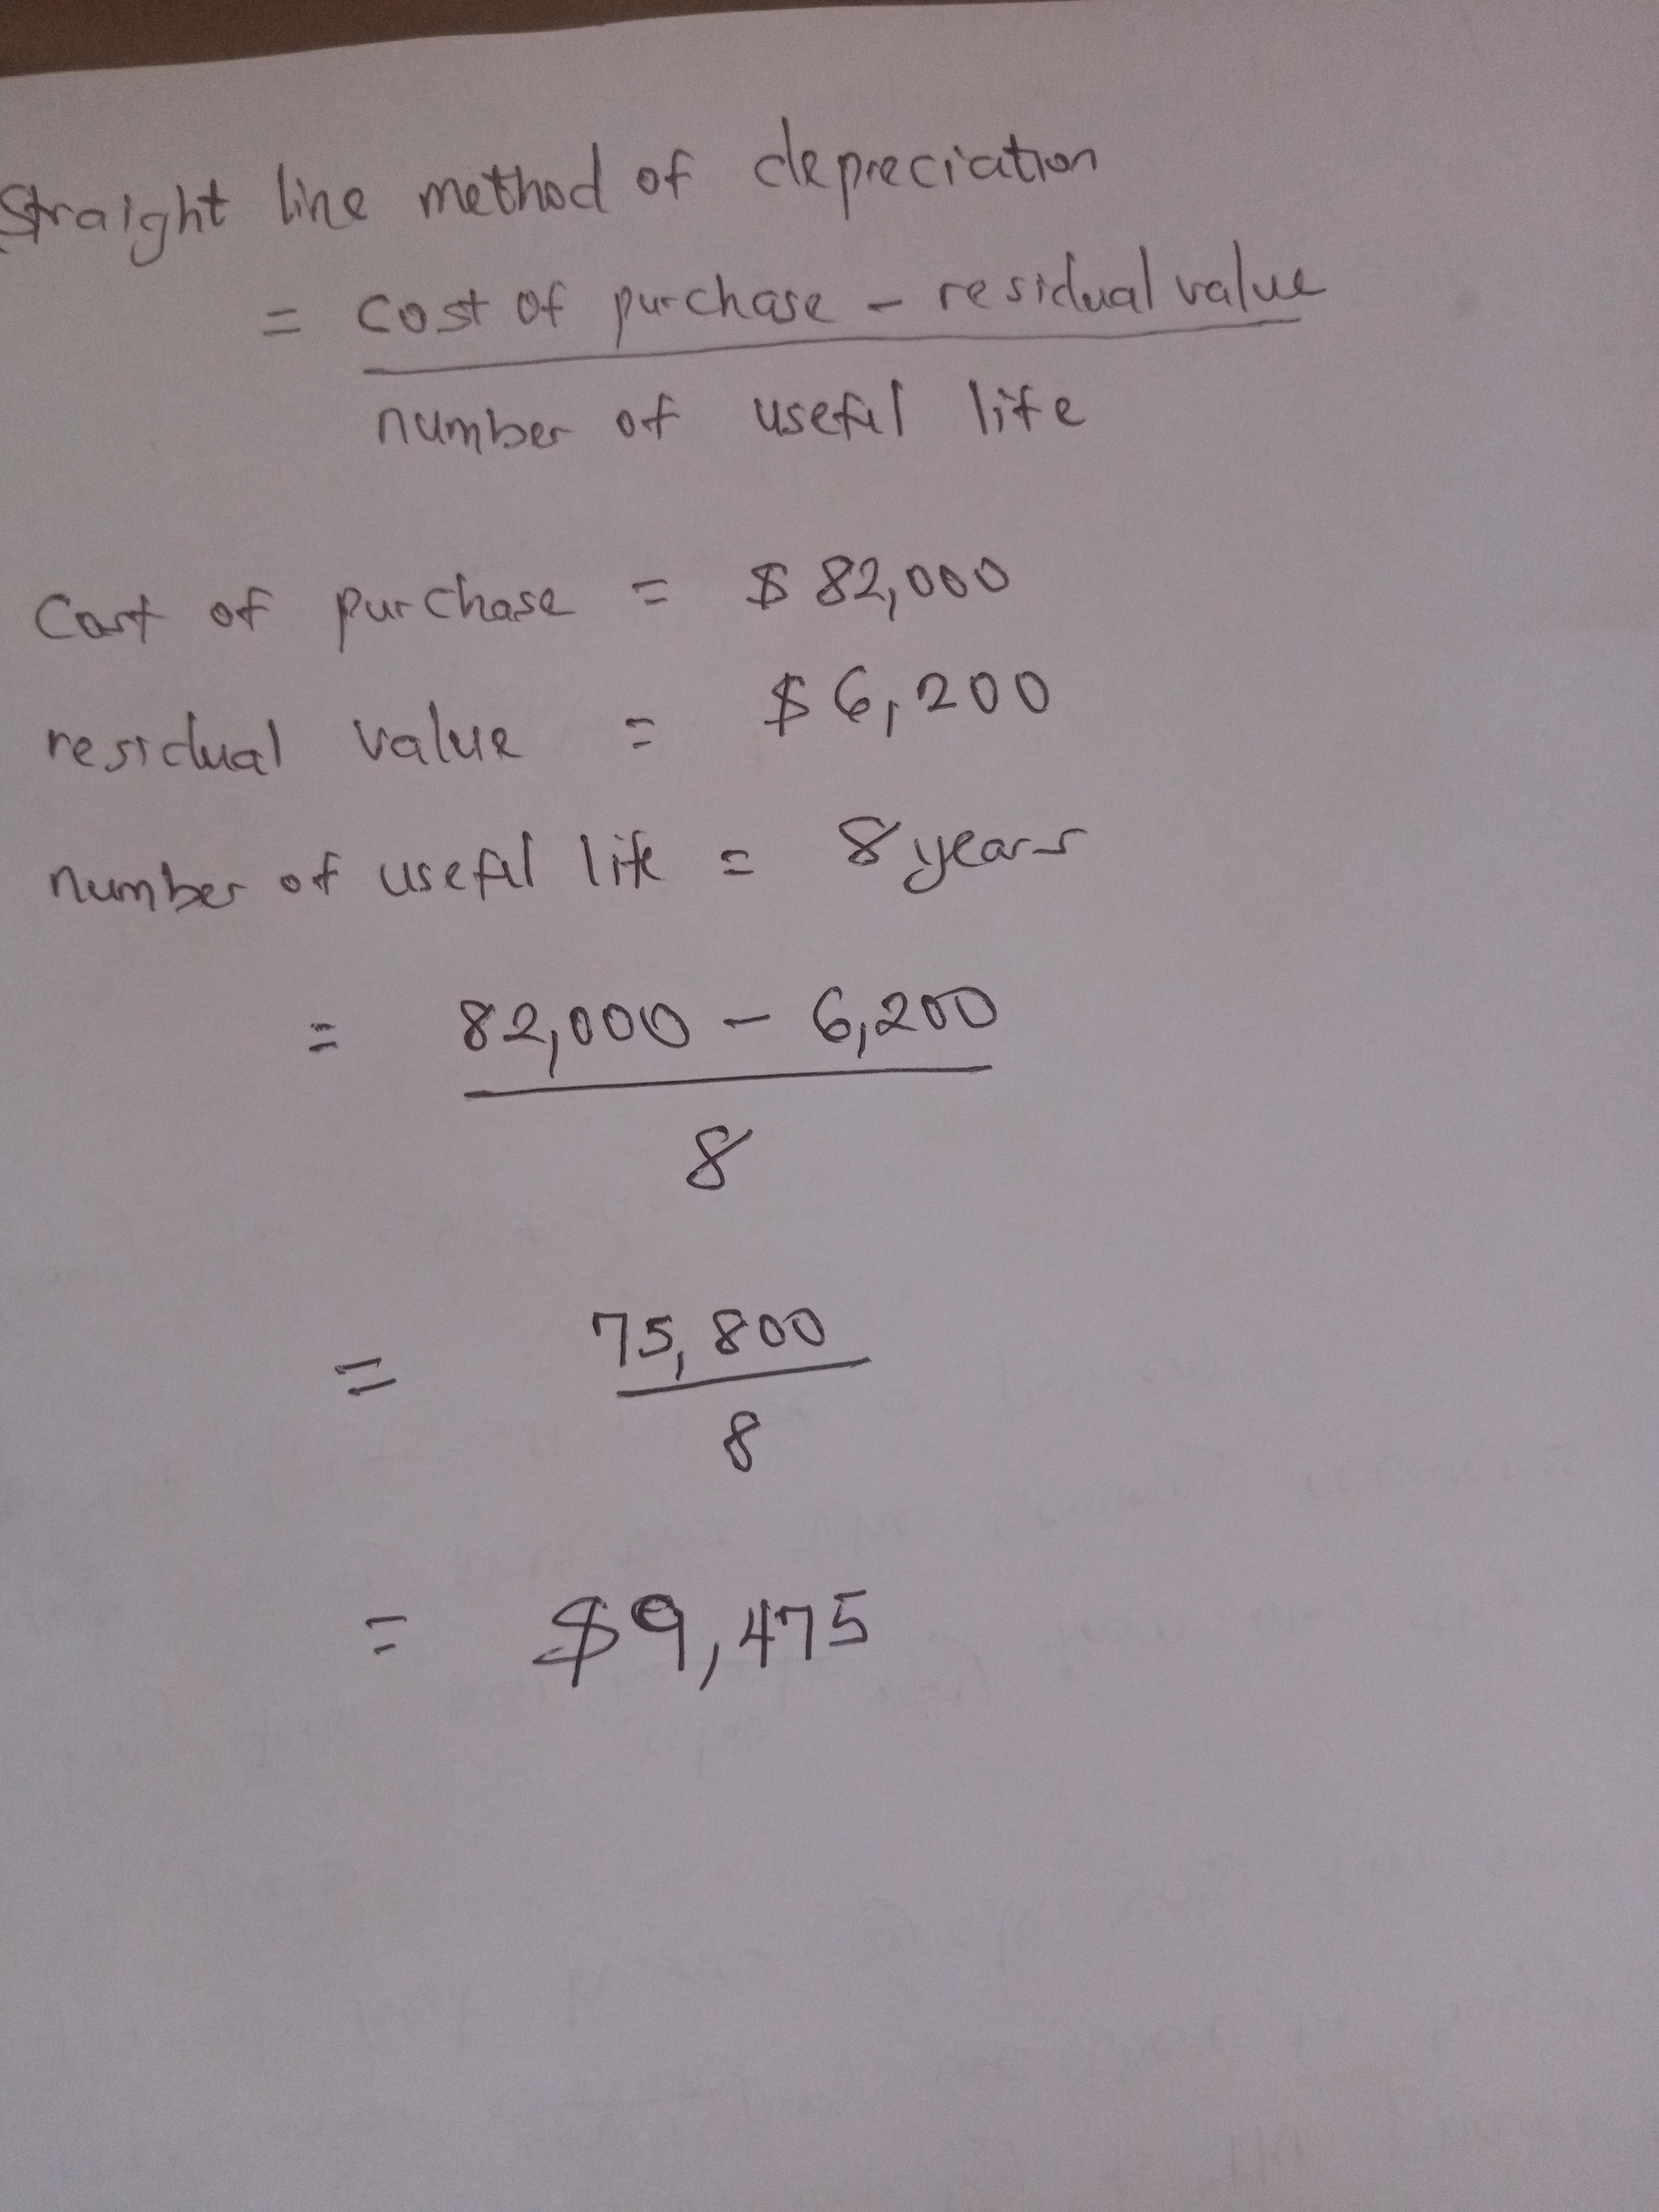 Straight line method of depreciation
= cost of purchase - residual value
number of useful life
Cost of purchase = $ 82,000
residual value = $ 6,200
number of useful life = 8 years
= 82,000 - 6,200
8
= 75,800
8
= $9,475